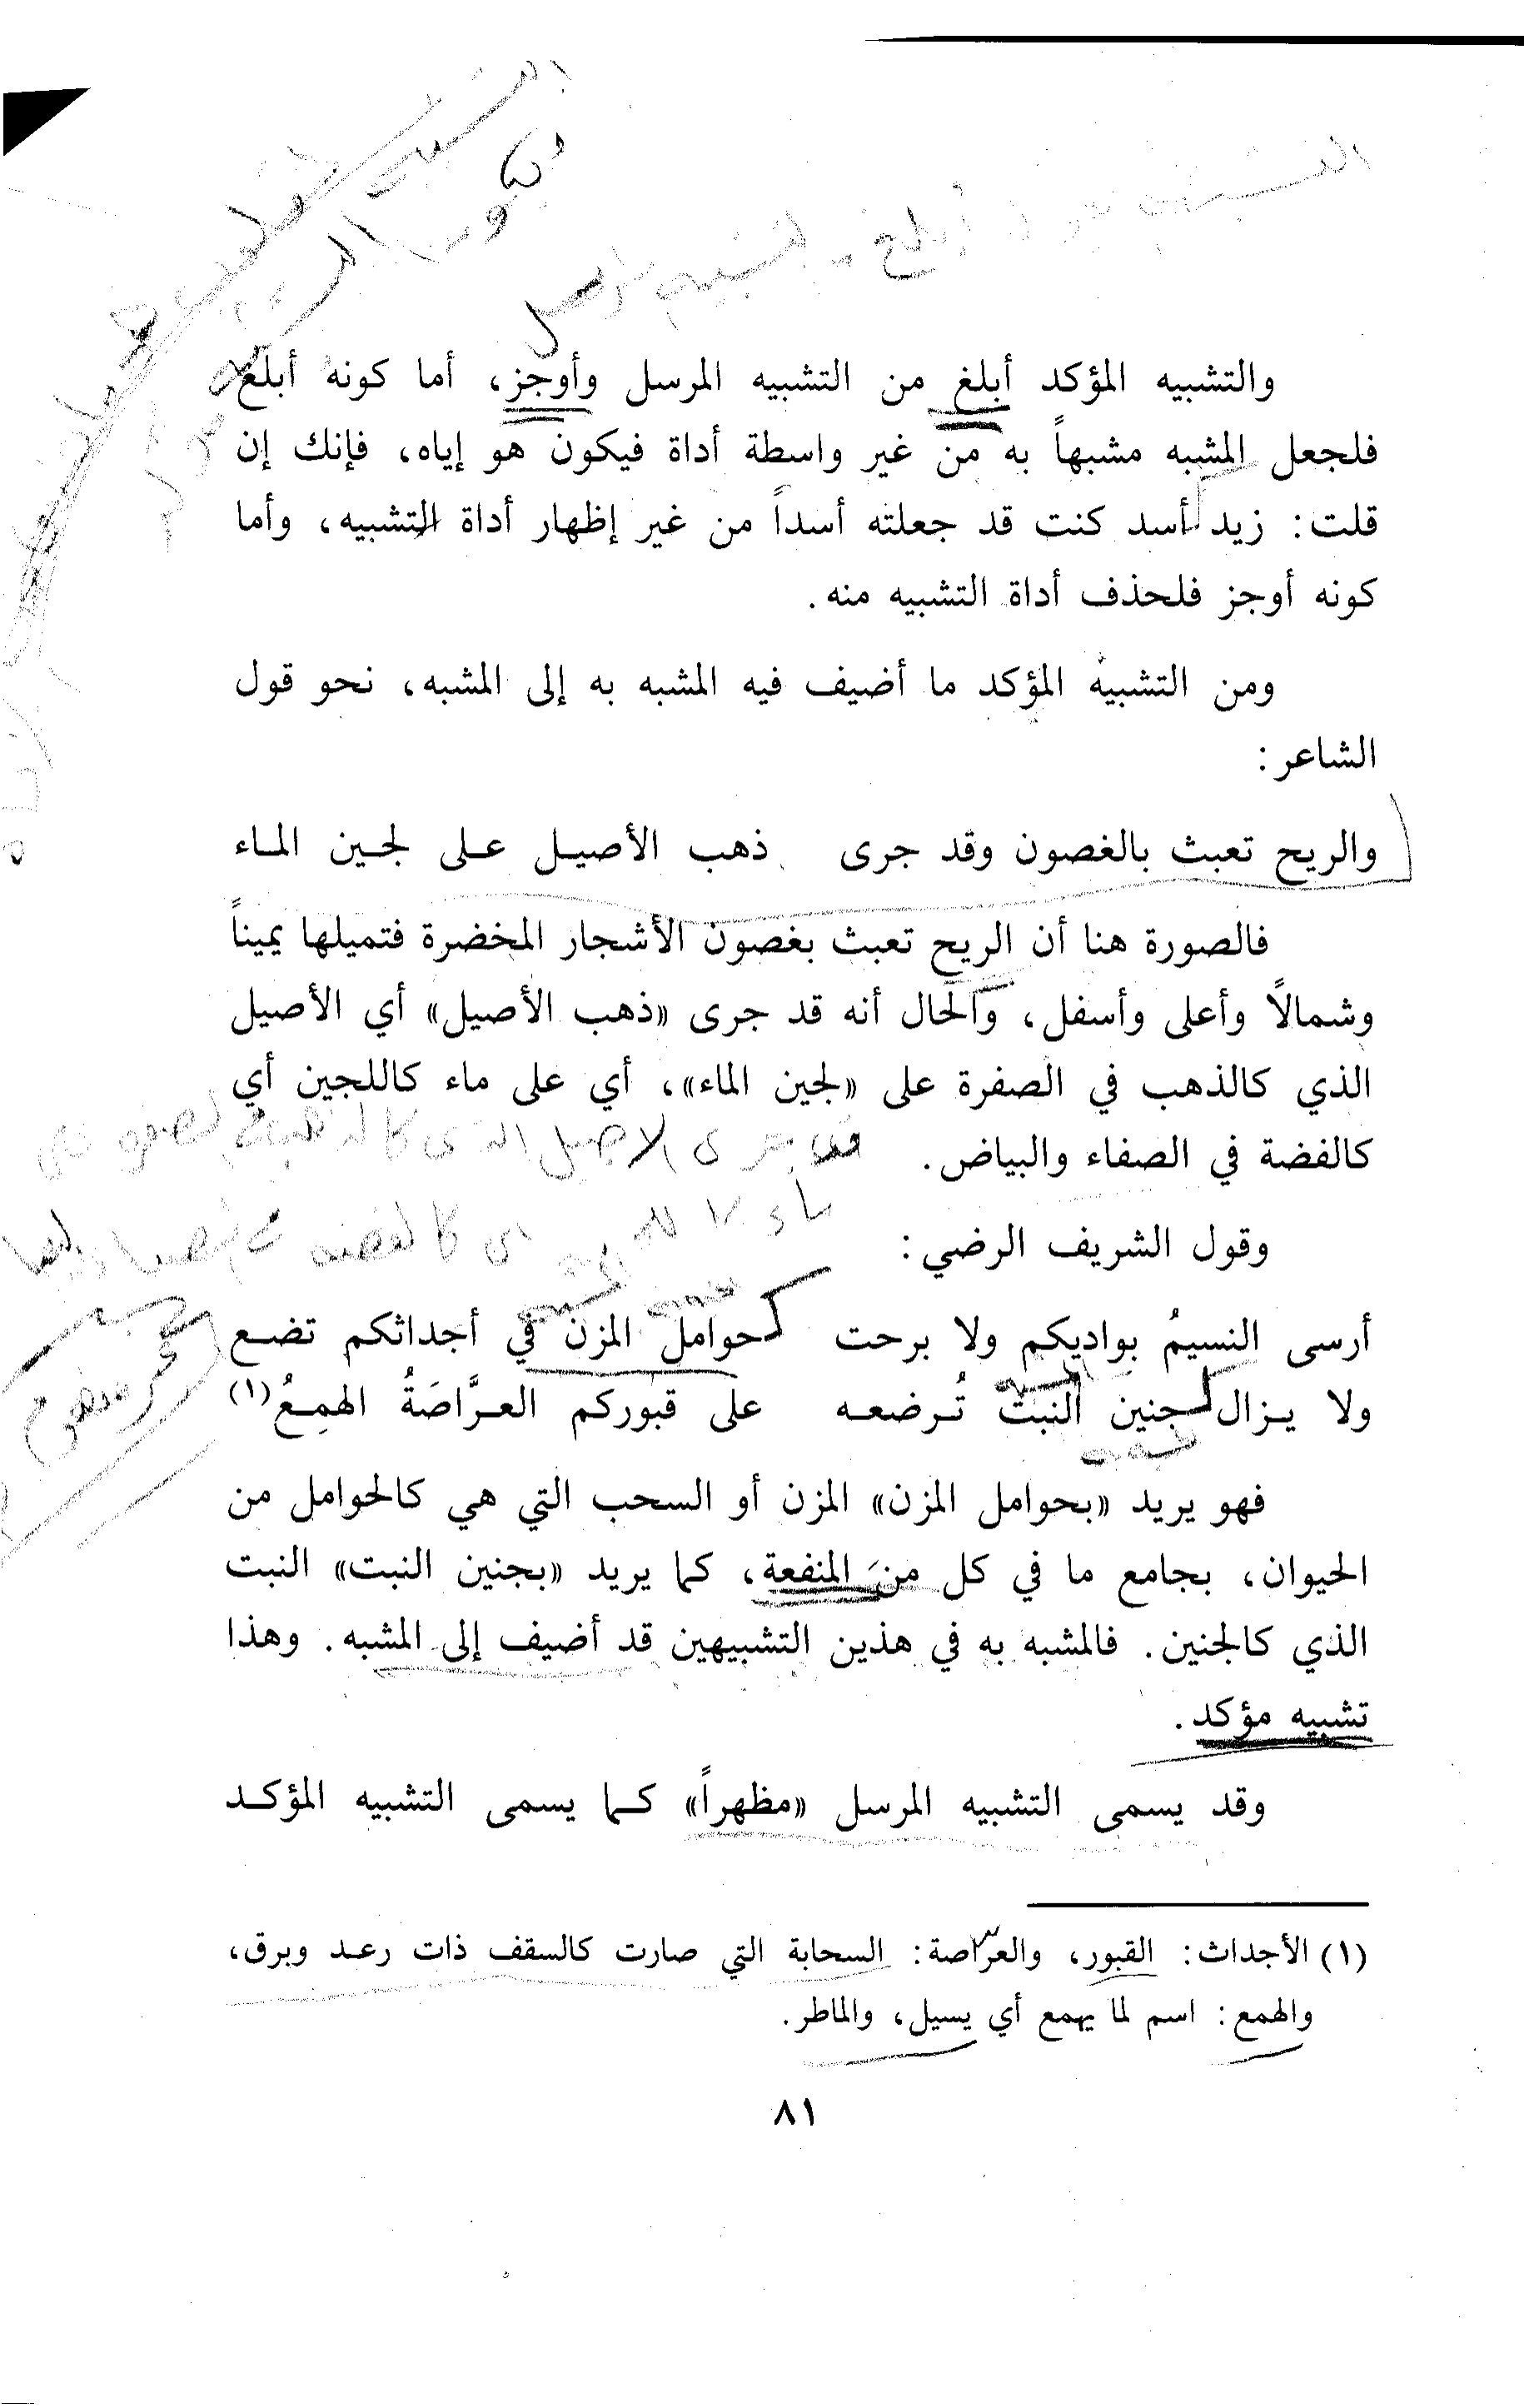 والتشبيه المؤكد أبلغ من التشبيه المرسل وأوجز، أما كونه أبلغ
فلجعل المشبه مشبهاً به من غير واسطة أداة فيكون هو إياه، فإنك إن
قلت: زيد أسد كنت قد جعلته أسداً من غير إظهار أداة التشبيه، وأما
كونه أوجز فلحذف أداة التشبيه منه.
ومن التشبيه المؤكد ما أضيف فيه المشبه به إلى المشبه، نحو قول
الشاعر:
والريح تعبث بالغصون وقد جرى ذهب الأصيـل عـلى لجـين المـاء
فالصورة هنا أن الريح تعبث بغصون الأشجار المخضرة فتميلها يميناً
وشمالاً وأعلى وأسفل، والحال أنه قد جرى «ذهب الأصيل» أي الأصيل
الذي كالذهب في الصفرة على «لجين الماء»، أي على ماء كاللجين أي
كالفضة في الصفاء والبياض.
وقول الشريف الرضي:
أرسى النسيمُ بواديكم ولا برحت حوامل المزن في أجداثكم تضـع
ولا يـزال جنين النبت تُـرضعـه على قبوركم العـرَّاصَةُ الهمـعُ (١)
فهو يريد «بحوامل المزن» المزن أو السحب التي هي كالحوامل من
الحيوان، بجامع ما في كل من المنفعة، كما يريد «بجنين النبت» النبت
الذي كالجنين. فالمشبه به في هذين التشبيهين قد أضيف إلى المشبه. وهذا
تشبيه مؤكد.
وقد يسمى التشبيه المرسل «مظهراً» كـما يسمى التشبيه المؤكـد
(١) الأجداث: القبور، والعرّاصة: السحابة التي صارت كالسقف ذات رعـد وبرق،
والهمع: اسم لما يهمع أي يسيل، والماطر.
٨١